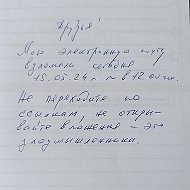 Друзья!
Мою электронную почту
взломали сегодня
15.05.24 г ~ в 12
Не переходите по
ссылкам, не откры-
вайте вложения – это
злоумышленники.